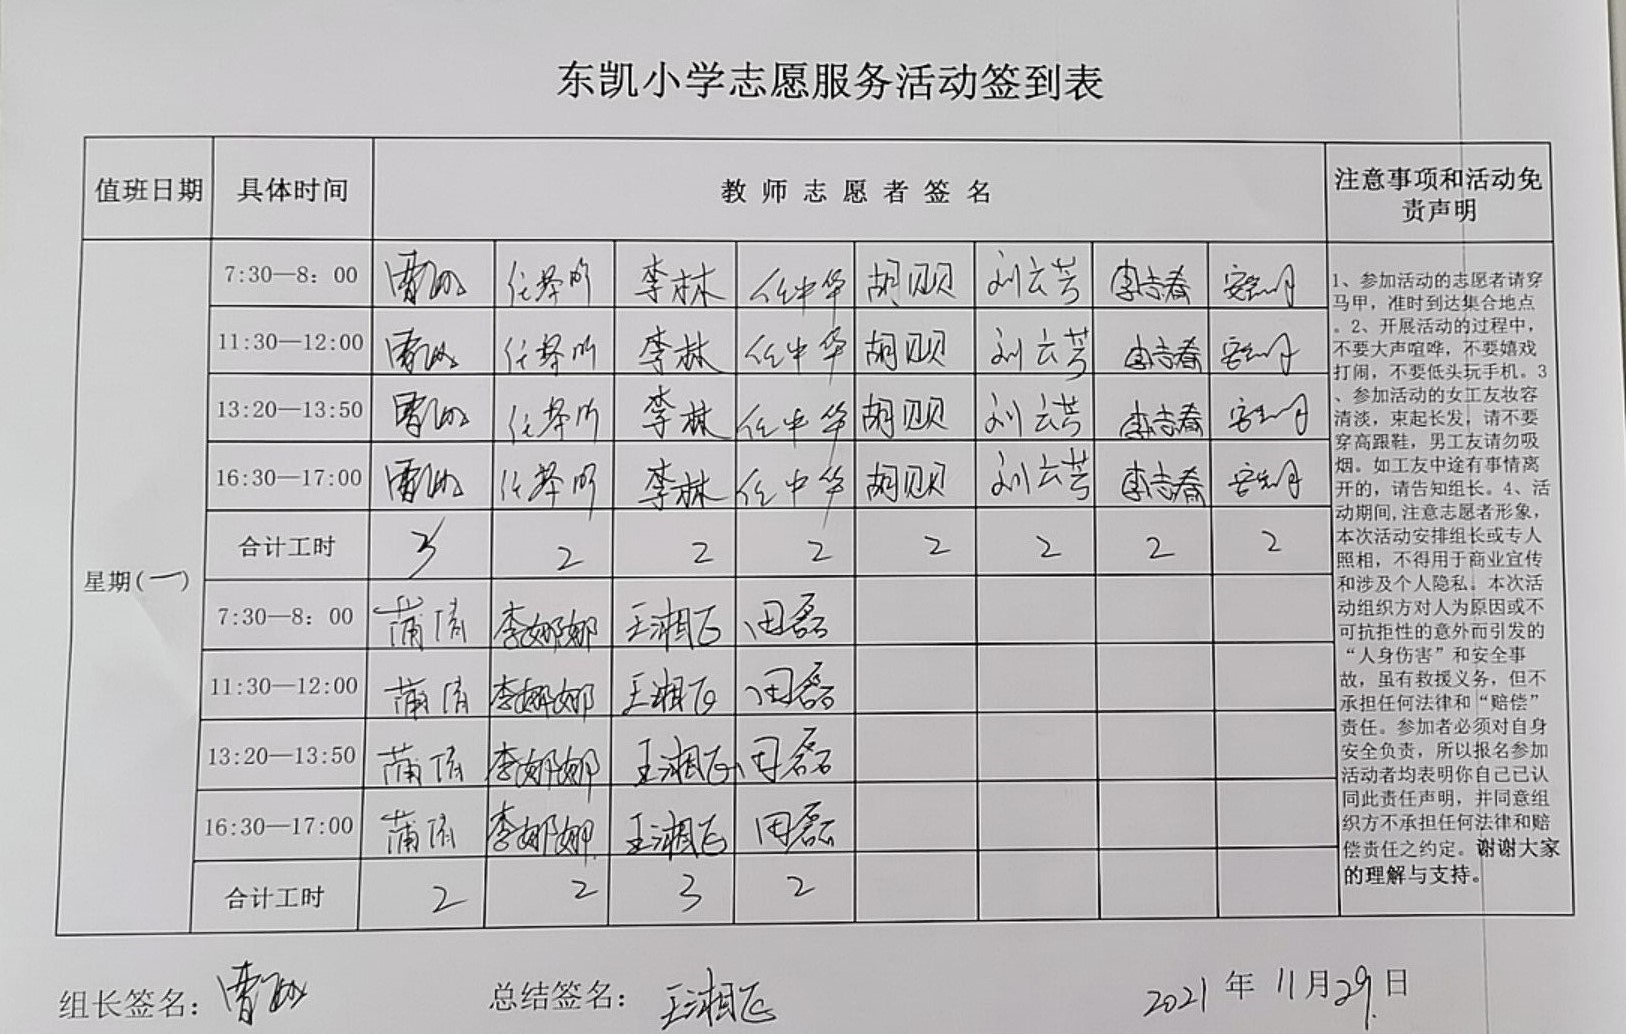 东凯小学志愿服务活动签到表
值班日期 具体时间 教师志愿者签名 注意事项和活动免
责声明
7:30—8：00 李林 任中华 胡贝贝 刘云芳 李志春
11:30—12:00 李林 任中华 胡贝贝 刘云芳 李志春
13:20—13:50 李林 任中华 胡贝贝 刘云芳 李志春
16:30—17:00 李林 任中华 胡贝贝 刘云芳 李志春
合计工时 3 2 2 2 2 2 2 2
星期(一)
7:30—8：00 蒲倩 李娜娜 王湘飞 田磊
11:30—12:00 蒲倩 李娜娜 王湘飞 田磊
13:20—13:50 蒲倩 李娜娜 王湘飞 田磊
16:30—17:00 蒲倩 李娜娜 王湘飞 田磊
合计工时 2 2 3 2
1、参加活动的志愿者请穿
马甲，准时到达集合地点
。2、开展活动的过程中，
不要大声喧哗，不要嬉戏
打闹，不要低头玩手机。3
、参加活动的女工友妆容
清淡，束起长发，请不要
穿高跟鞋，男工友请勿吸
烟。如工友中途有事情离
开的，请告知组长。4、活
动期间,注意志愿者形象，
本次活动安排组长或专人
照相，不得用于商业宣传
和涉及个人隐私。本次活
动组织方对人为原因或不
可抗拒性的意外而引发的
“人身伤害”和安全事
故，虽有救援义务，但不
承担任何法律和“赔偿”
责任。参加者必须对自身
安全负责，所以报名参加
活动者均表明你自己已认
同此责任声明，并同意组
织方不承担任何法律和赔
偿责任之约定。谢谢大家
的理解与支持。
组长签名： 总结签名：王湘飞 2021年11月29日